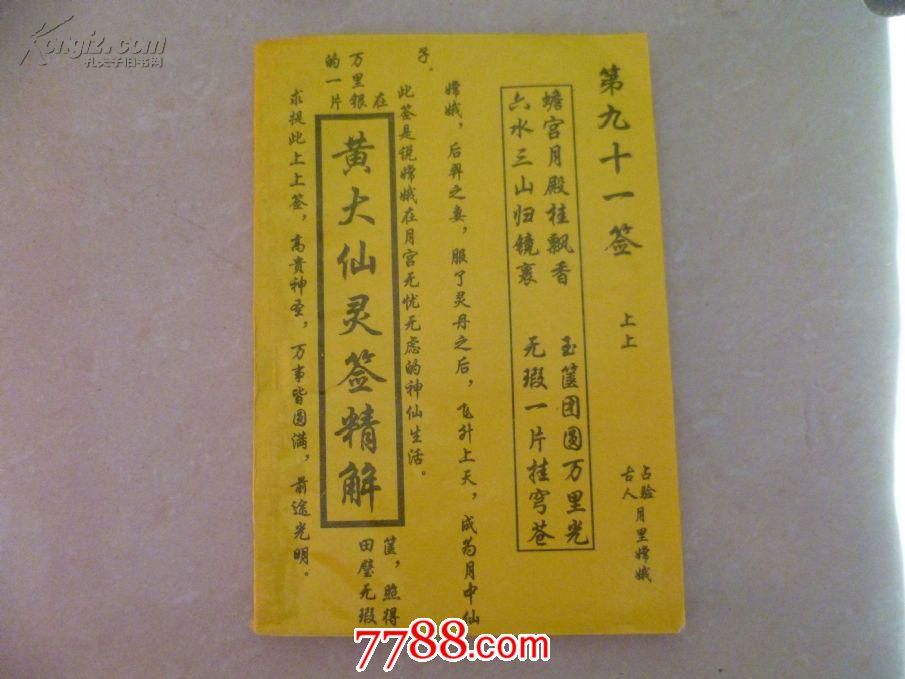 第九十一签 上上 占验古人 月里嫦娥
蟾宫月殿桂飘香 玉箧团圆万里光
六水三山归镜裹 无瑕一片挂穹苍
嫦娥，后羿之妻，服了灵丹之后，飞升上天，成为月中仙
子．
此签是说嫦娥在月宫无忧无虑的神仙生活。
在
箧，照得
万里银
田璧无瑕
的一片
黄大仙灵签精解
求提此上上签，高贵神圣，万事皆圆满，前途光明。
Kongfz.com
孔夫子旧书网
7788.com